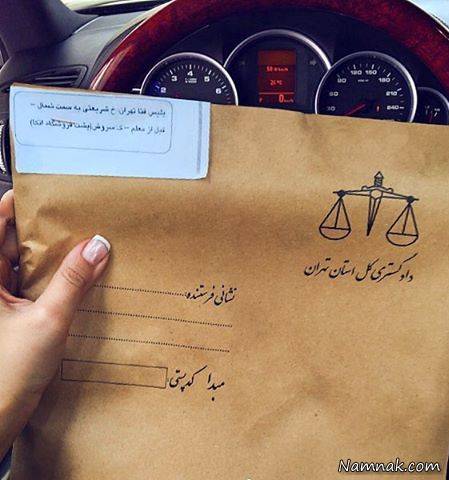 پلیس فتا تهران: خ شریعتی به سمت شمال -
قبل از معلم - خ سروش(پشت فروشگاه اتکا)
دادگستری کل استان تهران
نشانی فرستنده:
مبدا کدپستی:
Namnak.com